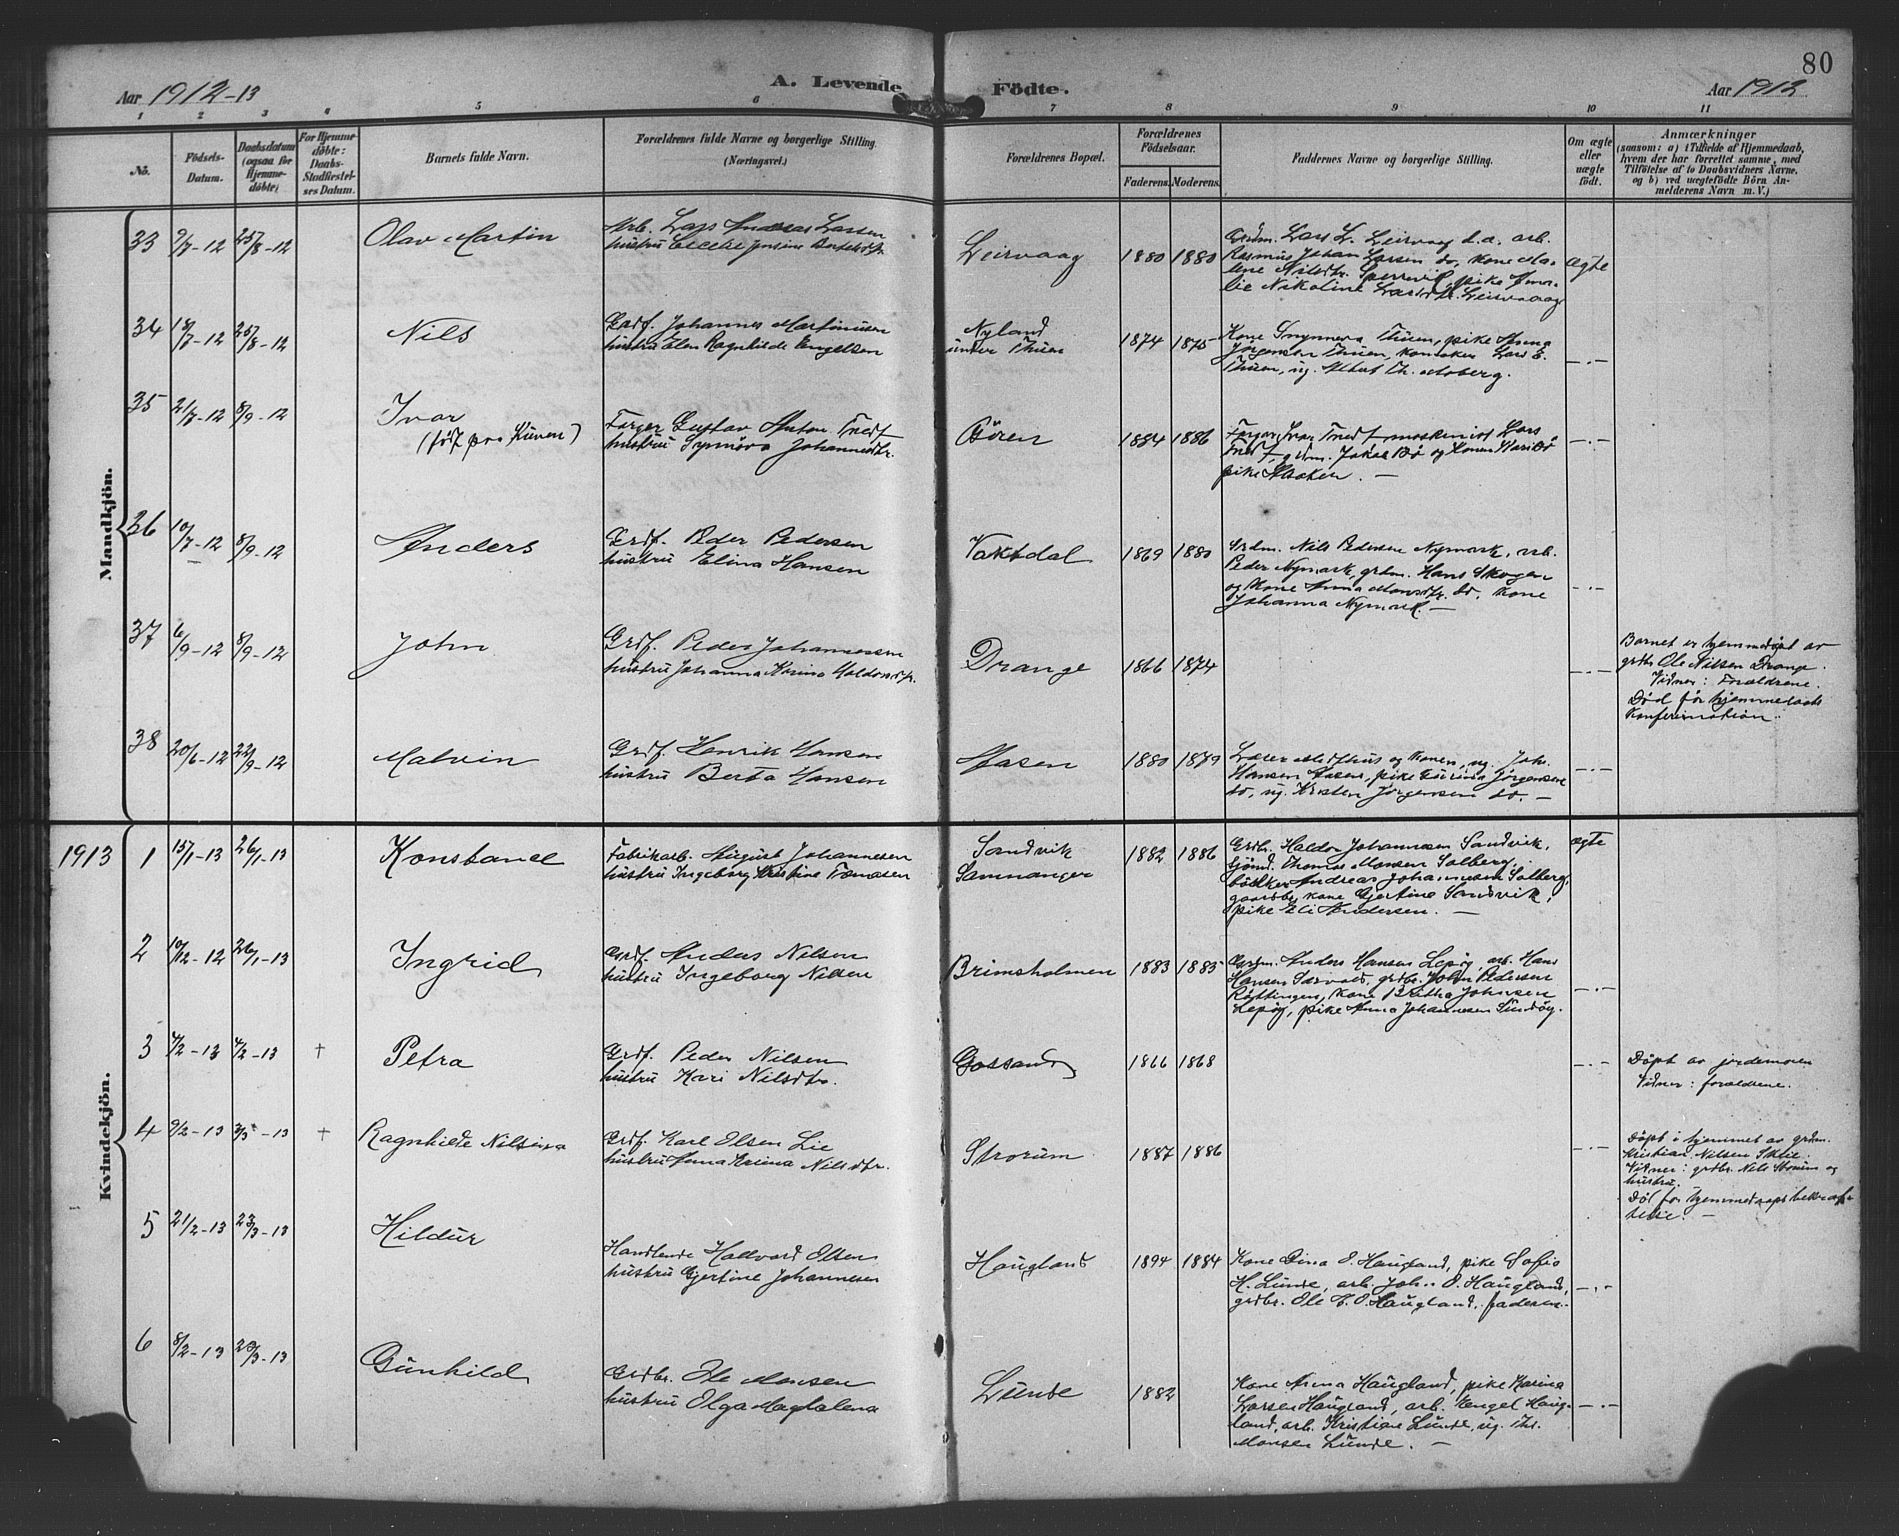 80
Aar 1912-13
A. Levende Födte.
Aar 1913
1 2 3 4 5 6 7 8 9 10 11
No.
Födsels-
Datum.
Daabsdatum
(ogsaa for
Hjemme-
döbte)
For Hjemme-
döbte:
Daabs-
Stadfæstel-
ses Datum.
Barnets fulde Navn.
Forældrenes fulde Navne og borgerlige Stilling.
(Næringsvei.)
Forældrenes Bopæl.
Forældrenes
Födselsaar.
Faderens. Moderens.
Faddernes Navne og borgerlige Stilling.
Om ægte
eller
uægte
födt.
Anmærkninger
(saasom: a) i Tilfælde af Hjemmedaab,
hvem der har forrettet samme, med
Tilföielse af to Daabsvidners Navne,
og b) ved uægtefödte Börn An-
melderens Navn m. V.)
Mandkjön.
33 9/7-12 25/8-12 Olav Martin
Arb. Lars Andreas Larsen
hustru Jensine
Leirvaag 1880 1880
Grdm. Lars L. Leirvaag d.a. arb.
Rasmus Johan Larsen do, kone Ma-
lene Nilsdtr. pike
Nikoline Larsdtr. Leirvaag
ægte
34 18/7-12 25/8-12 Nils
Johannes Martinusen
hustru Elen Ragnhilde Engelsen
Nyland
under Thuen
1874 1875
Kone Synneva Thuen, pike Anna
Jørgensen Thuen, Lars E.
Thuen, ug. Th. Moberg.
-.-
35 21/7-12 8/9-12 Ivar
Farger Gustav Anton
hustru Synnøva Johannesdtr.
Øren 1884 1886
Farger Ivar maskinist Lars
grdm. Jakob Bø og Konen Kari Bø
pike
-.-
36 10/7-12 8/9-12 Anders
Grdf. Peder Pedersen
hustru Elina Hansen
Vaksdal 1869 1880
Grdm. Nils Pedersen Nymark, arb.
Peder Nymark, grdm. Hans Skogen
og kone Anna Monsdtr. do, kone
Johanna Nymark. -
-.-
37 6/9-12 8/9-12 John
Grdf. Peder Johannessen
hustru Johanna Karina Haldorsdtr.
Drange 1866 1874
-.-
Barnet er hjemmedøpt av
grdbr. Ole Nilsen Drange.
Vidner: Forældrene.
Død før hjemmedaabs
Konfirmation.
38 20/6-12 22/9-12 Malvin
Grdf. Henrik Hansen
hustru Berta Hansen
Aasen 1880 1879
Lærer Midthus og konen, ug. Joh.
Hansen Aasen, pike Gurina Jørgensen
do, ug. Kristen Jørgensen do. -
-.-
Kvindekjön.
1913 1 15/1-13 26/1-13 Konstance
Fabrikarb. August Johannesen
hustru Ingeborg Kristine Tomasen
Sandvik
Samnanger
1882 1886
Grdb. Haldor Johannesen Sandvik,
sjømd. Thomas Monsen Solberg,
bødker Andreas Johannesen Solberg,
gaardbr. kone Gjertine Sandvik,
pike Eli Andersen. -
ægte
2 10/12-12 26/1-13 Ingrid
Grdf. Anders Nilsen
hustru Ingeborg Nilsen
Brimsholmen 1883 1885
Grdm. Anders Hansen Lepsøy, arb. Hans
Hansen grdbr. John Pedersen
Røttingen, kone Britha Johnsen
Lepsøy, pike Anna Johannesen Sundøy.
-.-
3 4/2-13 4/2-13 † Petra
Grdf. Peder Nilsen
hustru Kari Nilsdtr.
Gaassand 1866 1868
-.-
Døpt av jordemoren
Vidner: forældrene.
4 9/2-13 3/3-13 † Ragnhilde Nilsina
Grdf. Karl Olsen Lie
hustru Anna Nilsdtr.
Strorum 1887 1886
-.-
Døpt i hjemmet av grdm.
Kristian Nilsen
Vidner: grdbr. Nils Storum og
hustru.
Død før hjemmedaabs bekræf-
telse. -
5 21/2-13 23/3-13 Hildur
Handlende Hallvard Olsen
hustru Gjertine Johannesen
Haugland 1894 1884
Kone Dina O. Haugland, pike Sofie
H. Lunde, arb. Joh. O. Haugland,
grdbr. Ole K. O. Haugland, faderen.
-.-
6 8/2-13 23/3-13 Gunhild
Grdbr. Ole Monsen
hustru Olga Magdalena
Lunde 1882
Kone Anna Haugland, pike Karina
Larsen Haugland, arb. Haug-
land, arb. Kristian Lunde, ug.
Monsen Lunde. -
-.-